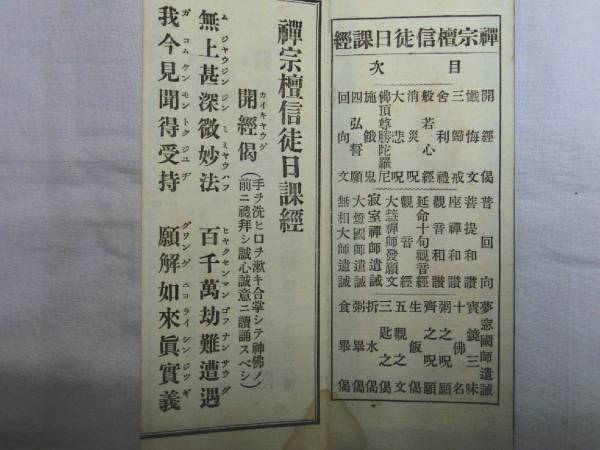 禪宗檀信徒日課經
目次
開經偈
懺悔文
三歸戒
舍利禮
般若心經
消災呪
大悲呪
佛頂尊勝陀羅尼
施餓鬼
四弘誓願
回向文
普回向
菩提和讃
座禪和讃
觀音和讃
延命十句觀音經
觀音經
大慧禪師發願文
寂室禪師遺誡
大燈國師遺誡
無相大師遺誡
夢窓國師遺誡
寶鏡三昧
十佛名
粥之呪願
齊之呪願
生飯偈
五觀之文
三匙之偈
折水偈
粥畢偈
食畢偈
禪宗檀信徒日課經
カイキヤウゲ
開經偈
(手ヲ洗ヒロヲ漱キ合掌シテ神佛ノ
前ニ禮拜シ誠心誠意ニ讀誦スベシ)
ムジヤウジンジンミミヤウハフ ヒヤクセンマンゴフナンサウグ
無上甚深微妙法 百千萬劫難遭遇
ガコムケンモントクジユヂ グワンゲニヨライシンジツギ
我今見聞得受持 願解如來眞實義